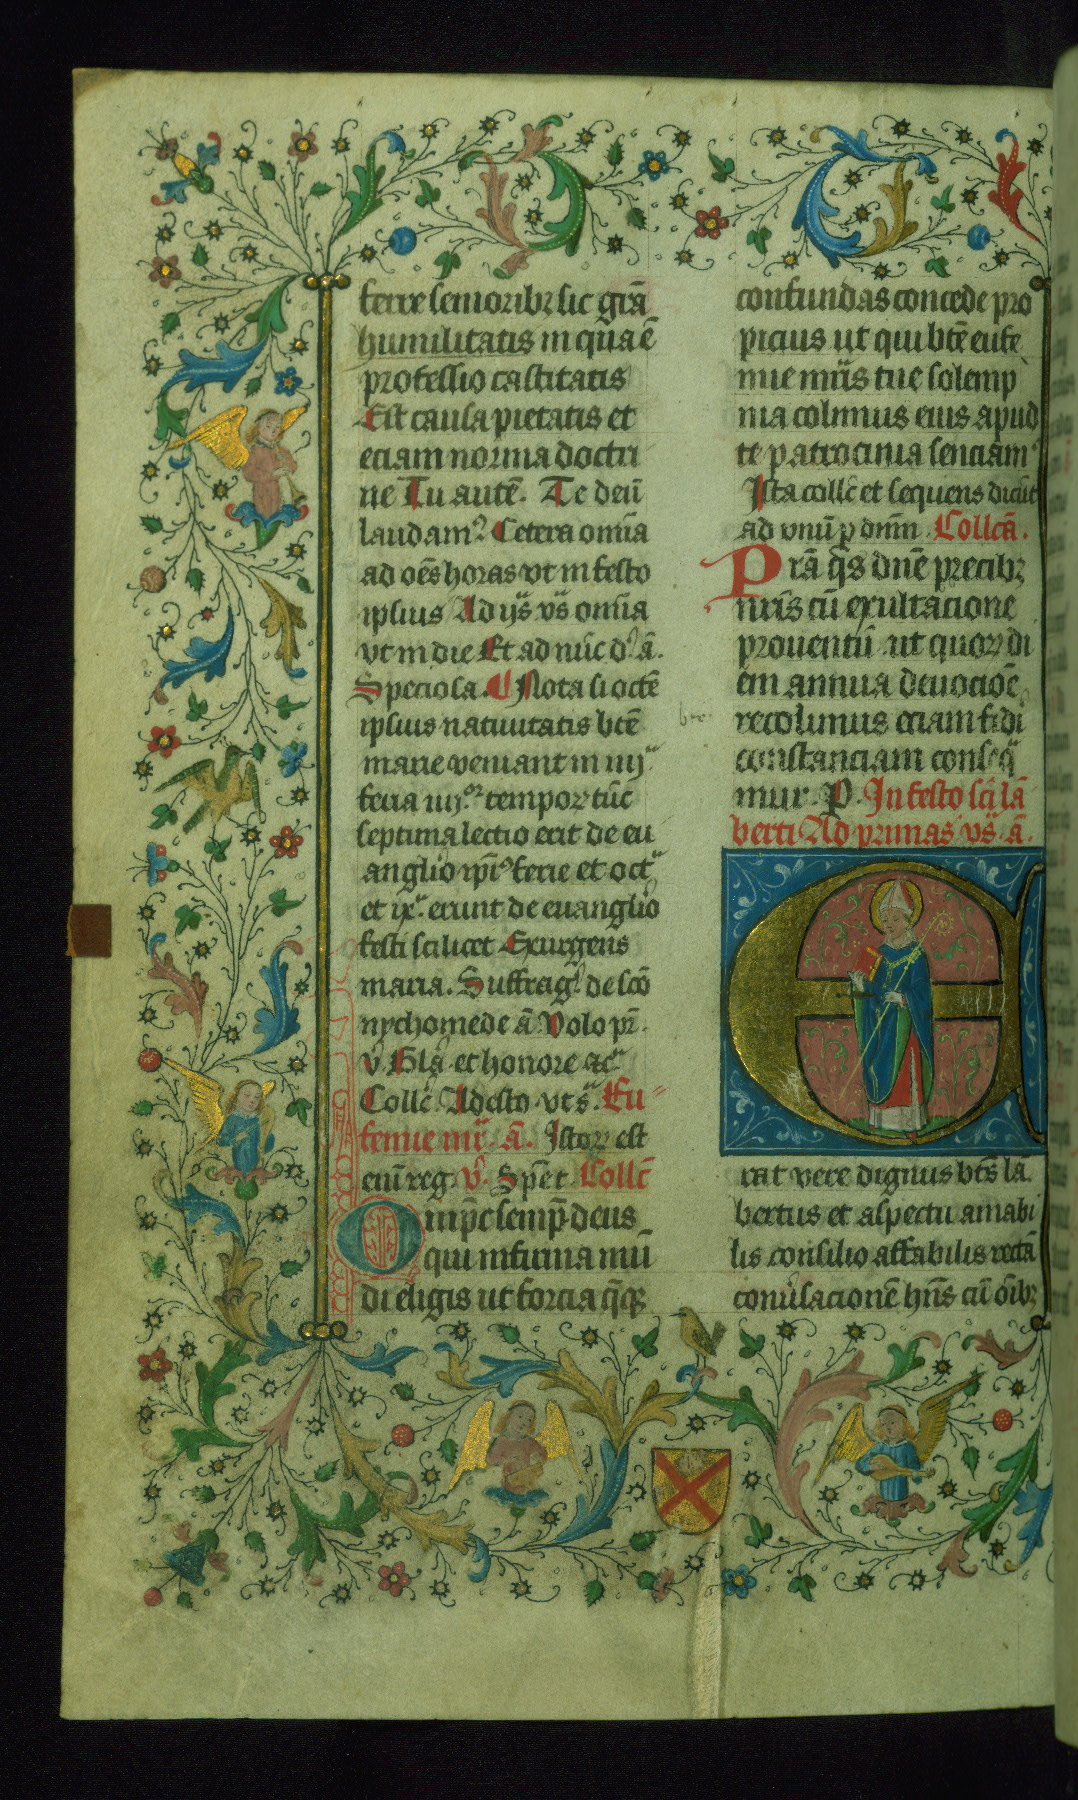 ferre senioribꝫ sic grã
humilitatis in qua ẽ
professio castitatis
Est causa pietatis et
eciam norma doctri
ne Tu autẽ. Te deũ
laudamꝰ Cetera omnia
ad oẽs horas vt in festo
ipsius Ad ijᵃˢ vs̃ omnia
vt in die Et ad nũc d. ã.
Speciosa. Nota si octẽ
ipsius natiuitatis btẽ
marie veniant in iiij
feria iiijᵒʳ tempoꝝ tũc
septima lectio erit de eu
anglio ipꝰ ferie et oct
et ixᵃ erunt de euanglio
festi scilicet Exurgens
maria. Suffrag. de scõ
nychomede ã Volo pr̃.
v̓ Gla. et honore ac
Collc̃ Adesto vt sᵃ. Eu
femie mr̃. ã. Istoꝝ est
enĩ reg. v̓. Spẽ et Collc̃
Omp̃c semp̃ deus
qui infirma mũ
di eligis ut forcia q̃qꝫ
confundas concede pro
picius ut qui btẽ eufe
mie mr̃is tue solemp
nia colimus eius apud
te patrocinia senciamꝰ
Ista collc̃ et sequens dicũt
ad vnũ p dnm̃. Collcã.
Prã q̃s dñe precibꝫ
nr̃is cũ exultacione
prouentũ ut quoꝝ di
em annua deuociõe
recolimus eciam fidi
constanciam conseq
mur. P. In festo sc̃i lã
berti Ad primas vs̃ ã.
Erat vere dignus btũs lã
bertus et aspectu amabi
lis consilio affabilis rectã
conuˀsacionẽ hñs cũ oĩbꝫ